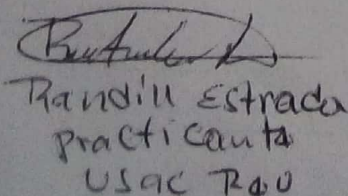 Randill Estrada
Practicanta
USAC